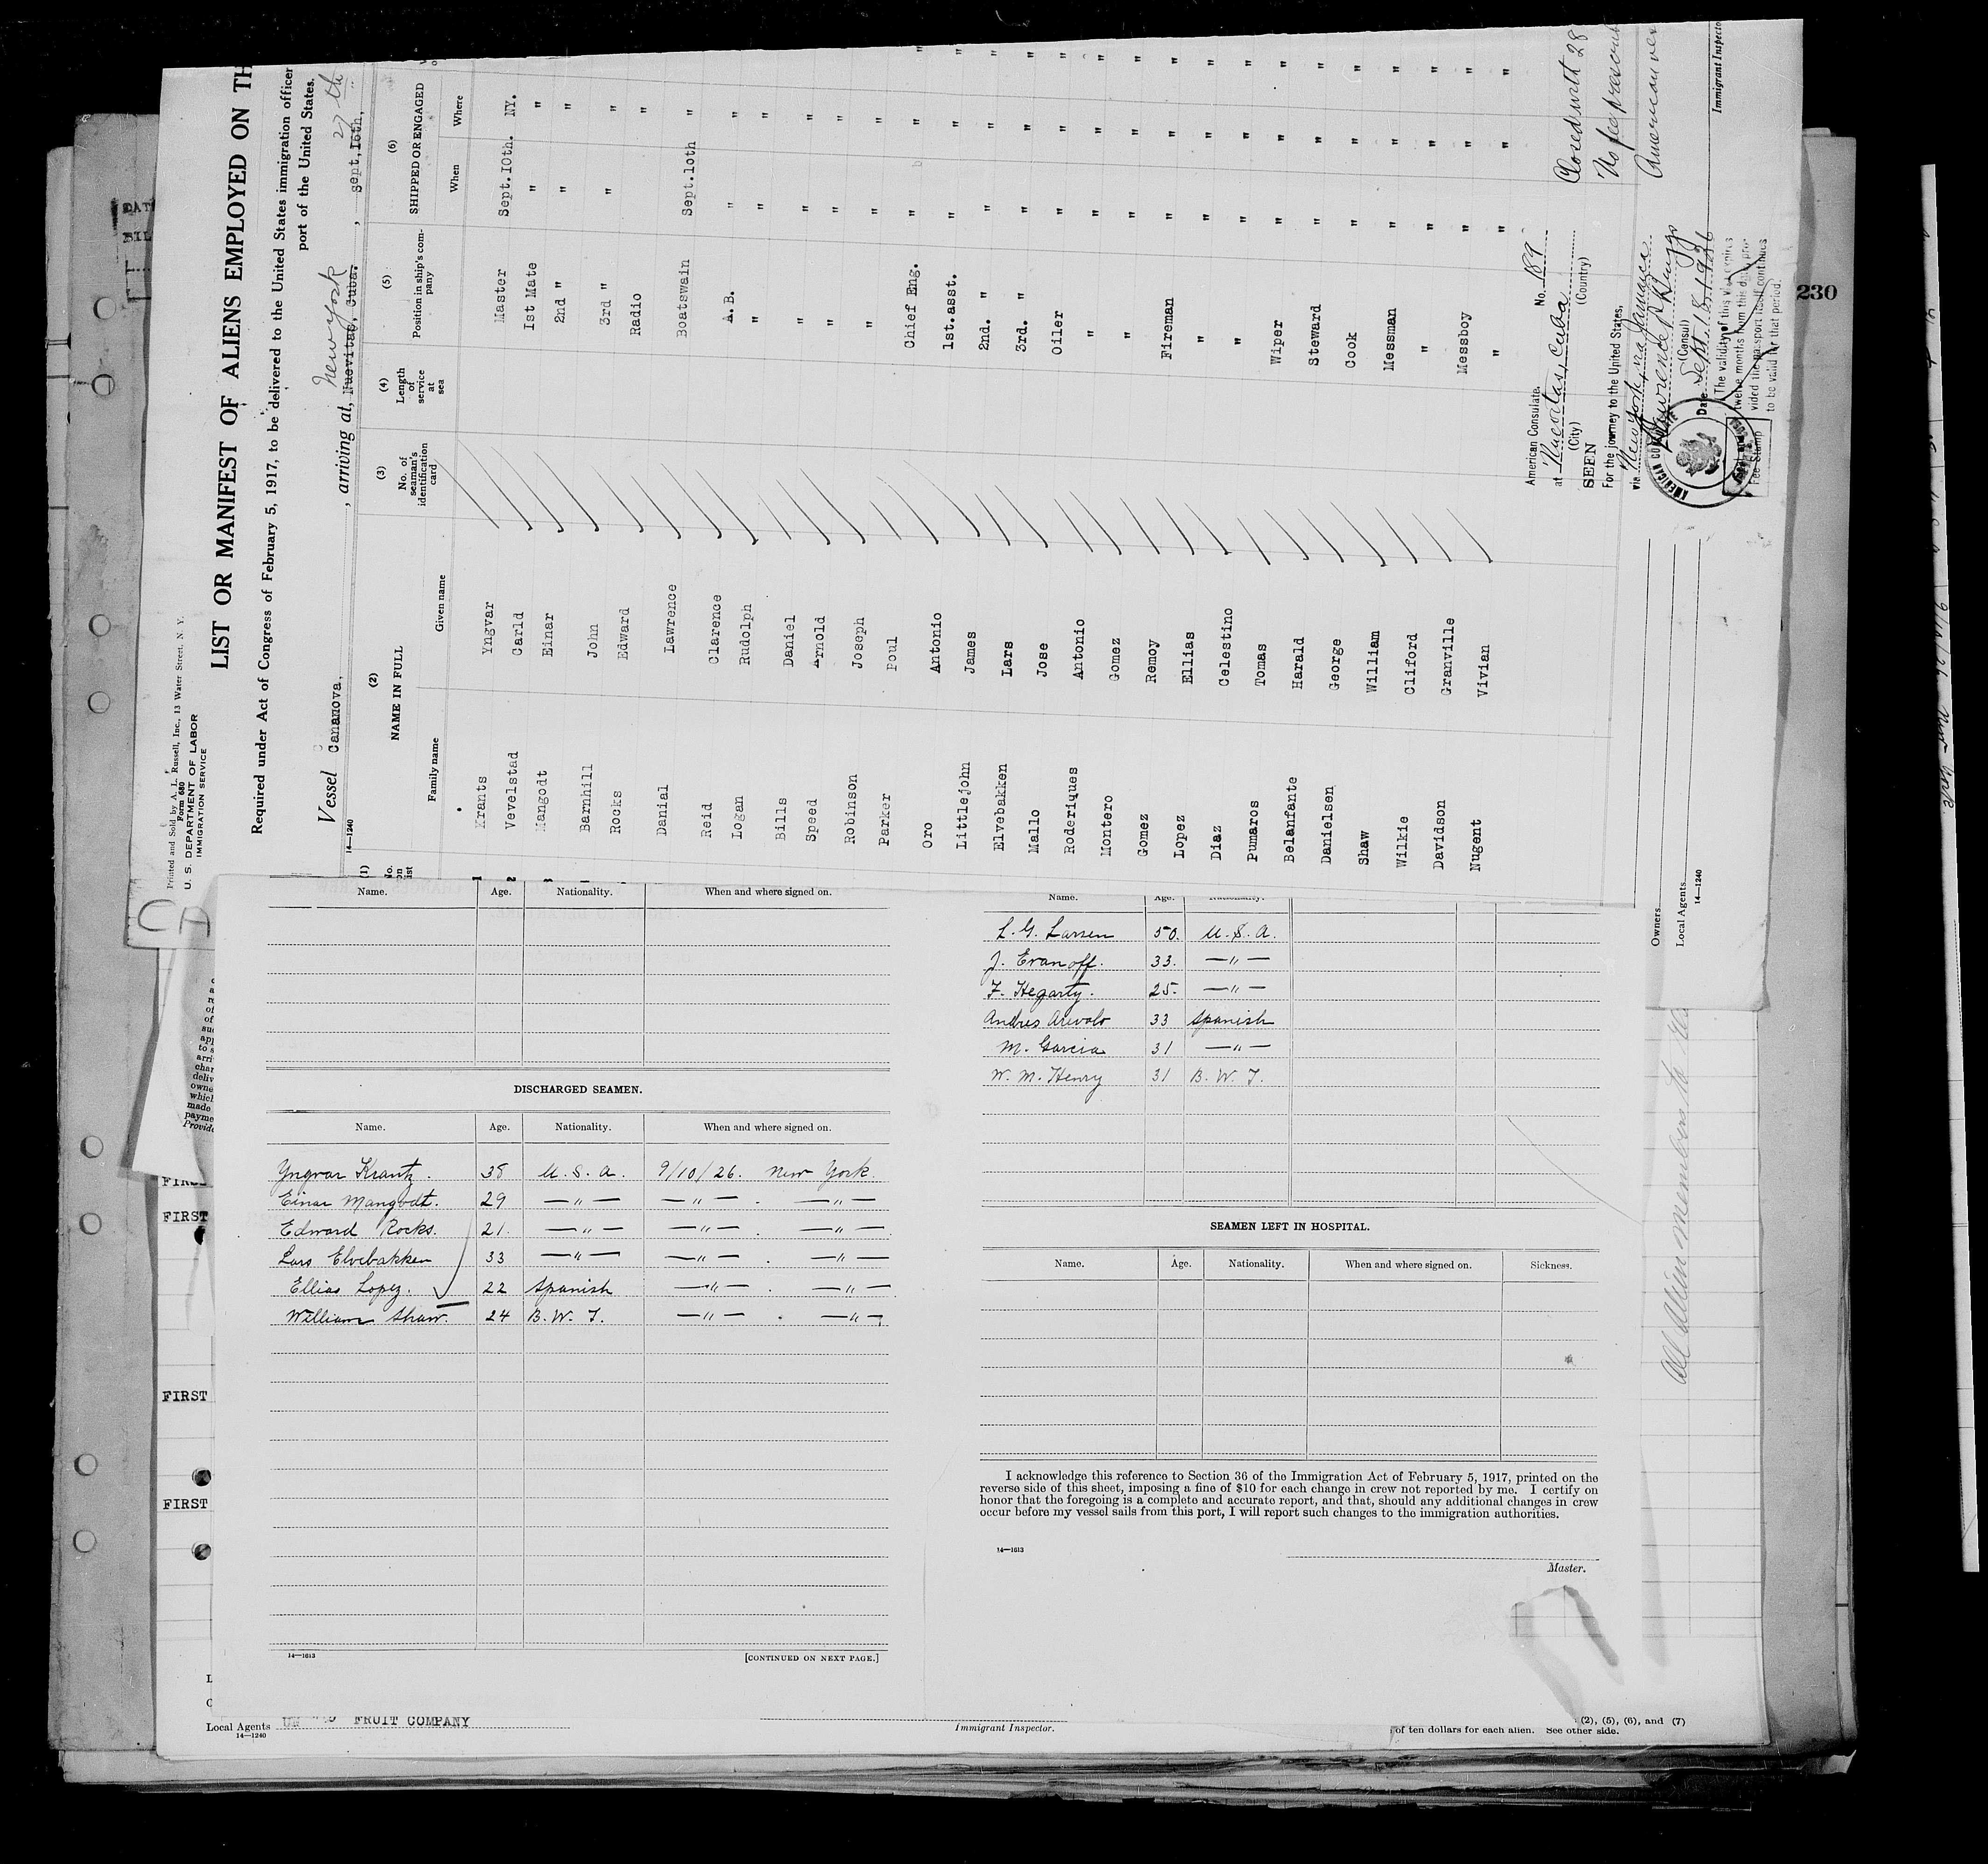 Printed and Sold by A. L. Russell, Inc., 13 Water Street, N. Y.
Form 680
U. S. DEPARTMENT OF LABOR
IMMIGRATION SERVICE
LIST OR MANIFEST OF ALIENS EMPLOYED ON TH
Required under Act of Congress of February 5, 1917, to be delivered to the United States immigration officer
port of the United States.
Vessel Cananova, , arriving at, Nuevitas, Cuba. New york , Sept, 16th, 27th
14—1240
(1) (2) (3) (4) (5) (6)
No. on list NAME IN FULL No. of seaman's identification card Length of service at sea Position in ship's company SHIPPED OR ENGAGED
Family name Given name When Where
1 Krants Yngvar Master Sept.10th. NY.
2 Vevelstad Carld 1st Mate " "
3 Mangodt Einar 2nd " " "
Barnhill John 3rd " " "
Rocks Edward Radio "
Danial Lawrence Boatswain Sept.10th "
Reid Clarence A.B. " "
Logan Rudolph " " "
Bills Daniel " " "
Speed Arnold " " "
Robinson Joseph " " "
Parker Poul
Oro Antonio Chief Eng. " " "
Littlejohn James 1st.asst. " " "
Elvebakken Lars 2nd. " " " "
Mallo Jose 3rd. " " " "
Roderiques Antonio Oiler " " "
Montero Gomez " " " "
Gomez Remoy " " " "
Lopez Ellias Fireman " " "
Diaz Celestino " " " "
Pumaros Tomas " " " "
Belanfante Harald Wiper " " "
Danielsen George Steward " " "
Shaw William Cook " " "
Wilkie Cliford Messman " " "
Davidson Granville " " " "
Nugent Vivian Messboy " " "
American Consulate, No. 189
at Nuevitas, Cuba
(City) (Country)
SEEN
For the journey to the United States,
via New York, via Jamaica
(Consul)
Date Sept. 18, 1926
The validity of this visa expires
twelve months from this date pro-
vided the passport itself continues
to be valid for that period.
Fee Stamp
AMERICAN CO
No fee prescribed
American ves
Immigrant Inspecto
Owners
Local Agents
14—1240
230
CA
Name. Age. Nationality. When and where signed on.
DISCHARGED SEAMEN.
Name. Age. Nationality. When and where signed on.
Yngvar Krantz. 38 U. S. A. 9/10/26. New York.
Einar Mangodt. 29 —"— —"— . —"—
Edward Rocks. 21. —"— —"— . —"—
Lars Elvebakken 33 —"— —"— . —"—
Ellias Lopez. 22 Spanish —"— . —"—
William Shaw. 24 B. W. I. —"— . —"—
14—1613
[CONTINUED ON NEXT PAGE.]
Name. Age. Nationality.
L. G. Larsen 50. U. S. A.
J. Evanoff. 33. —"—
F. Hegarty. 25. —"—
Andres Arevalo 33 Spanish
M. Garcia 31 —"—
W. M. Henry 31 B. W. I.
SEAMEN LEFT IN HOSPITAL.
Name. Age. Nationality. When and where signed on. Sickness.
I acknowledge this reference to Section 36 of the Immigration Act of February 5, 1917, printed on the
reverse side of this sheet, imposing a fine of $10 for each change in crew not reported by me. I certify on
honor that the foregoing is a complete and accurate report, and that, should any additional changes in crew
occur before my vessel sails from this port, I will report such changes to the immigration authorities.
14—1613
Master.
All Alien members to
FIRST
FIRST
FIRST
Local Agents FRUIT COMPANY
14—1240
Immigrant Inspector.
(2), (5), (6), and (7)
of ten dollars for each alien. See other side.